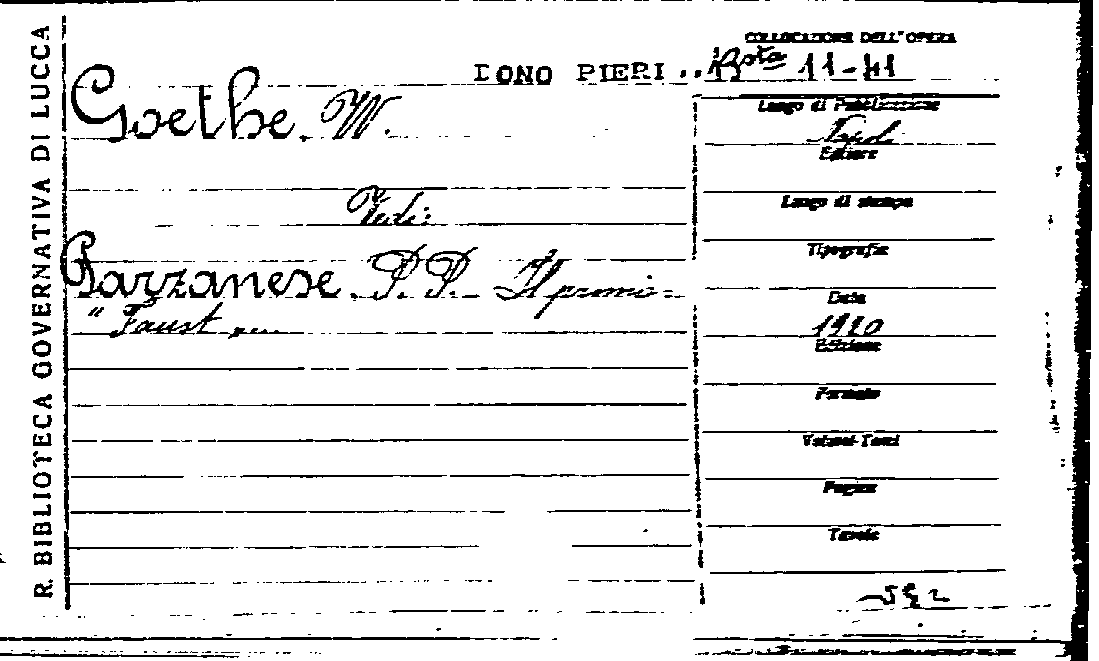 R. BIBLIOTECA GOVERNATIVA DI LUCCA
COLLOCAZIONE DELL'OPERA
DONO PIERI .. Bsta 11-41
Goethe. W.
Vedi:
Parzanese. P. P. Il primo
" Faust "
Luogo di Pubblicazione
Napoli
Editore
Luogo di stampa
Tipografia
Data
1920
Edizione
Formato
Volumi-Tomi
Pagine
Tavole